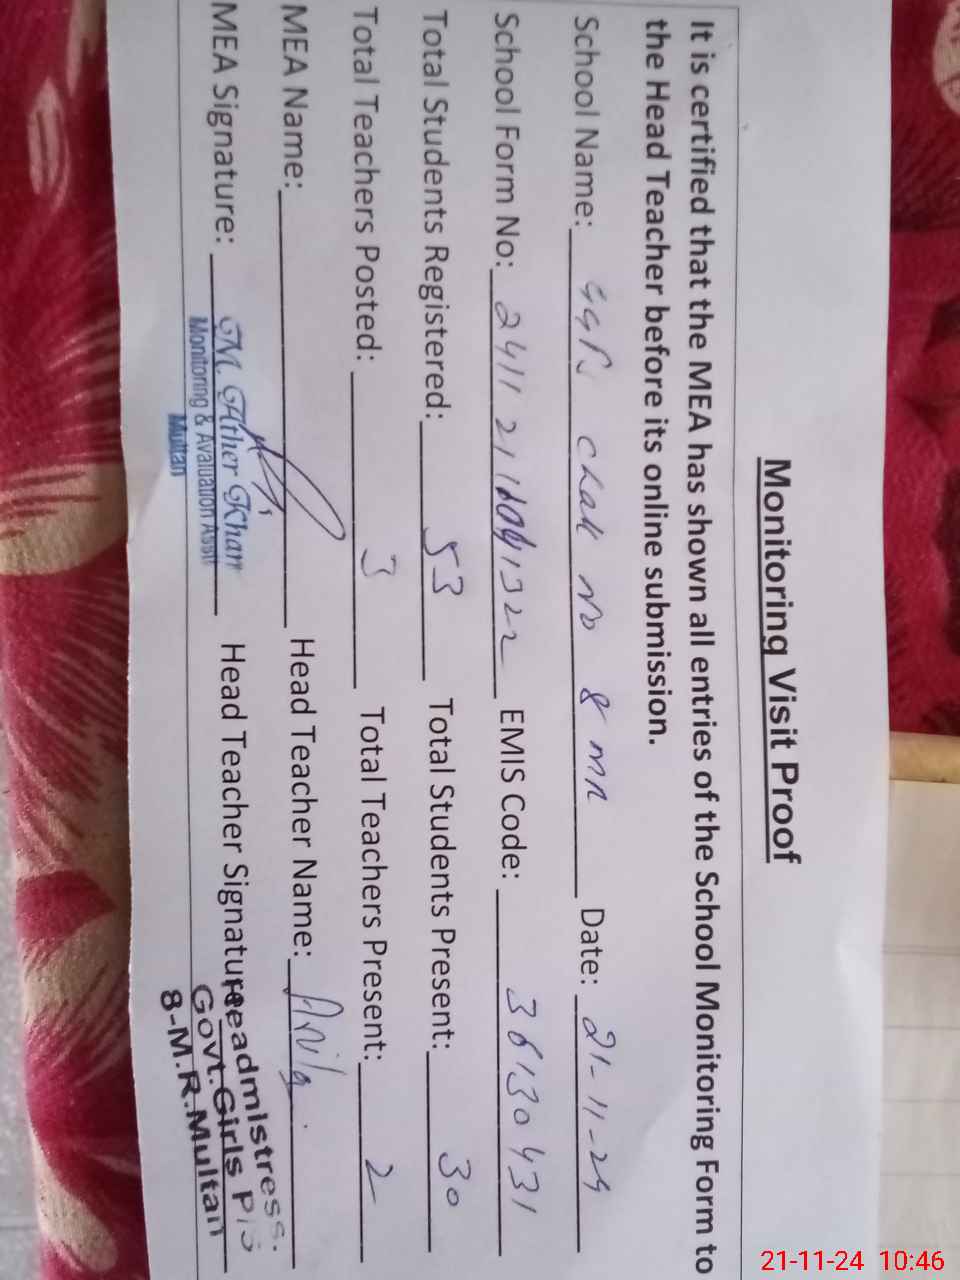 Monitoring Visit Proof
It is certified that the MEA has shown all entries of the School Monitoring Form to
the Head Teacher before its online submission.
School Name: GGPS Chak No 8 MR Date: 21-11-24
School Form No: 2411 21 1322 EMIS Code: 36130431
Total Students Registered: 53 Total Students Present: 30
Total Teachers Posted: 3 Total Teachers Present: 2
MEA Name: Head Teacher Name: Anila
MEA Signature: M. Ather Khan Head Teacher Signature: Headmistress
Monitoring & Avaluation Asstt Govt.Girls P/S
Multan 8-M.R.Multan
21-11-24 10:46